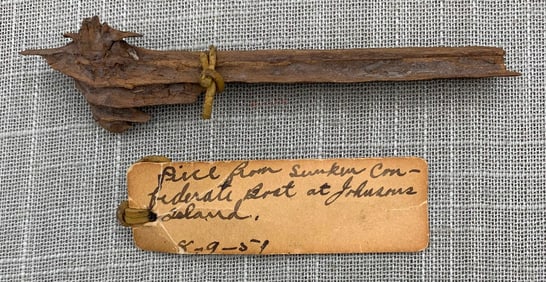 Piece from sunken Con-
federate Boat at Johnsons
island.
8-9-51